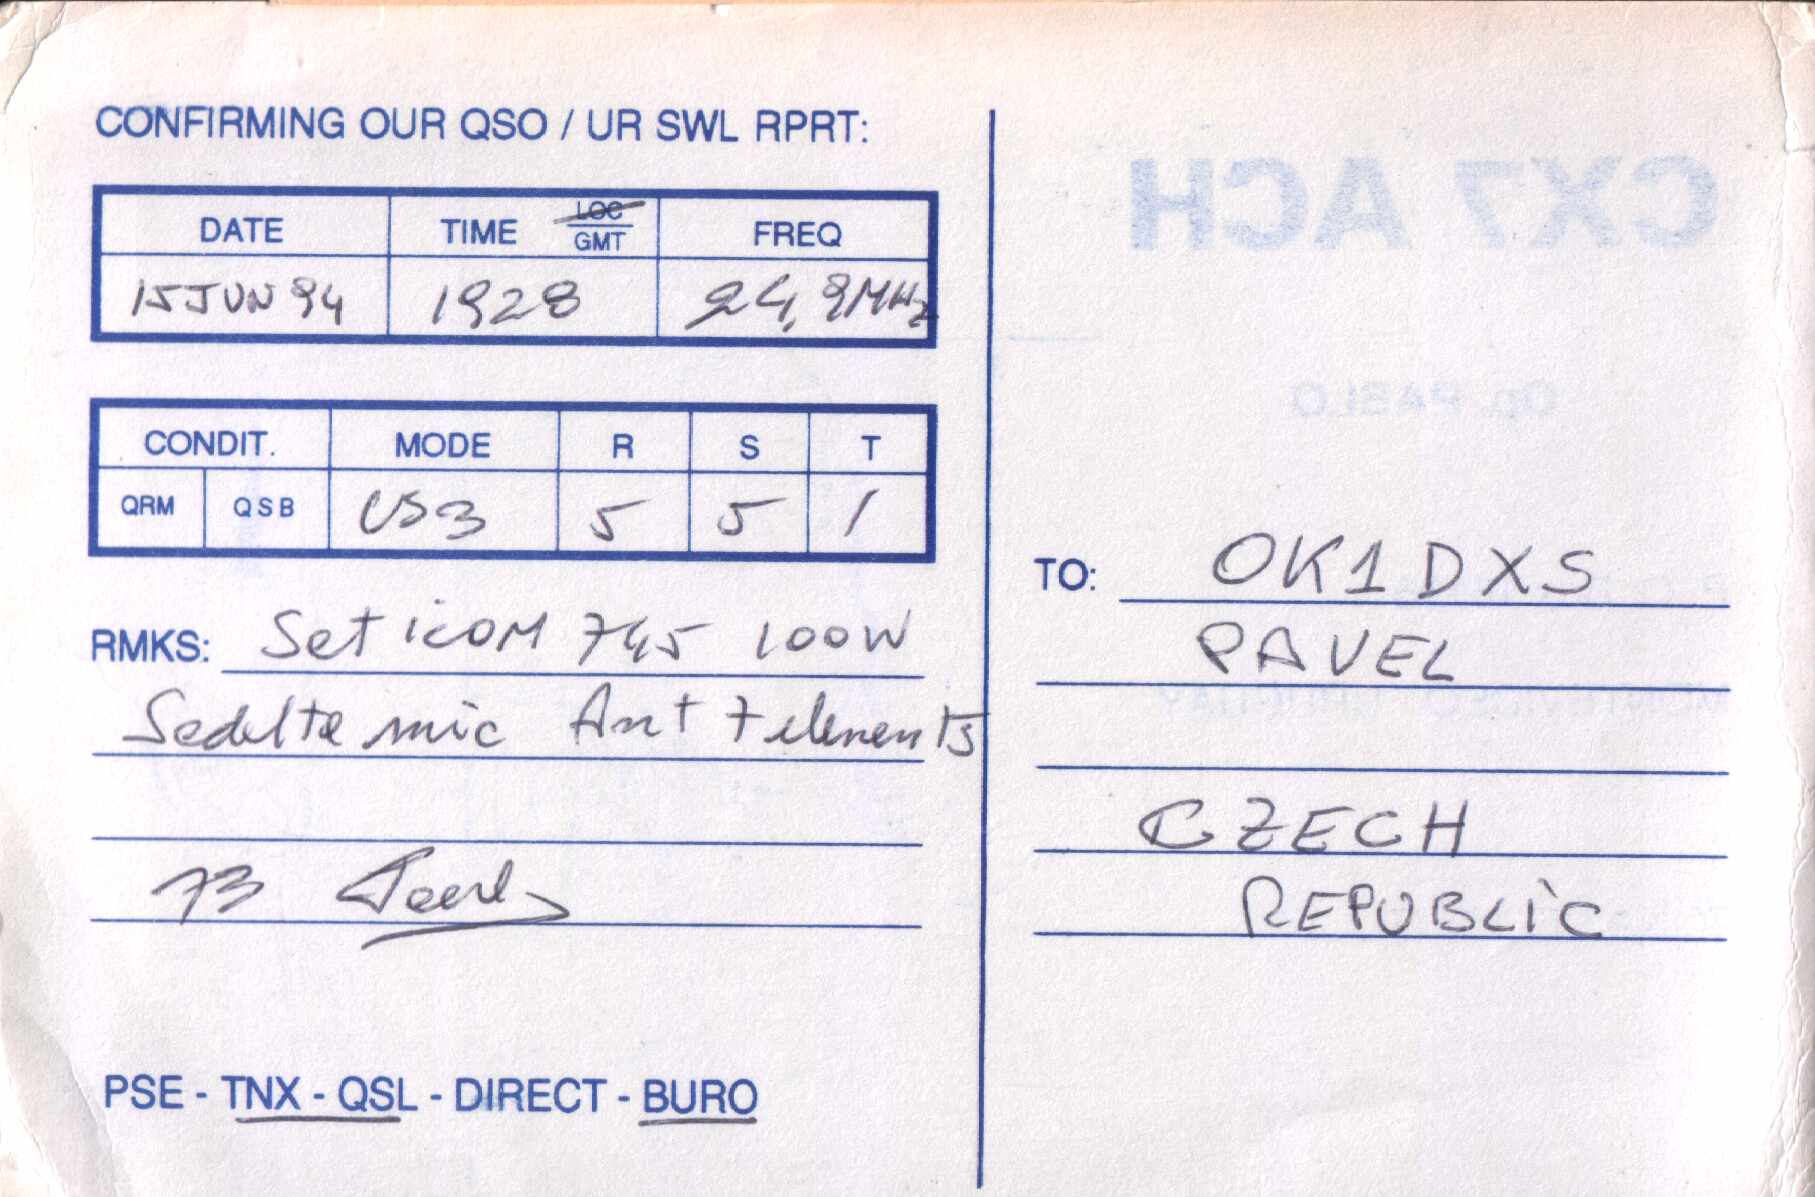 CONFIRMING OUR QSO / UR SWL RPRT:
DATE TIME LOC GMT FREQ
15 JUN 94 1928 24,9MHz
CONDIT. MODE R S T
QRM QSB USB 5 5 /
RMKS: Set icoM 745 100W
mic Ant 7 elements
73
PSE - TNX - QSL - DIRECT - BURO
CX7 ACH
Op. PABLO
TO: OK1DXS
PAVEL
MONTEVIDEO - URUGUAY
CZECH
REPUBLiC